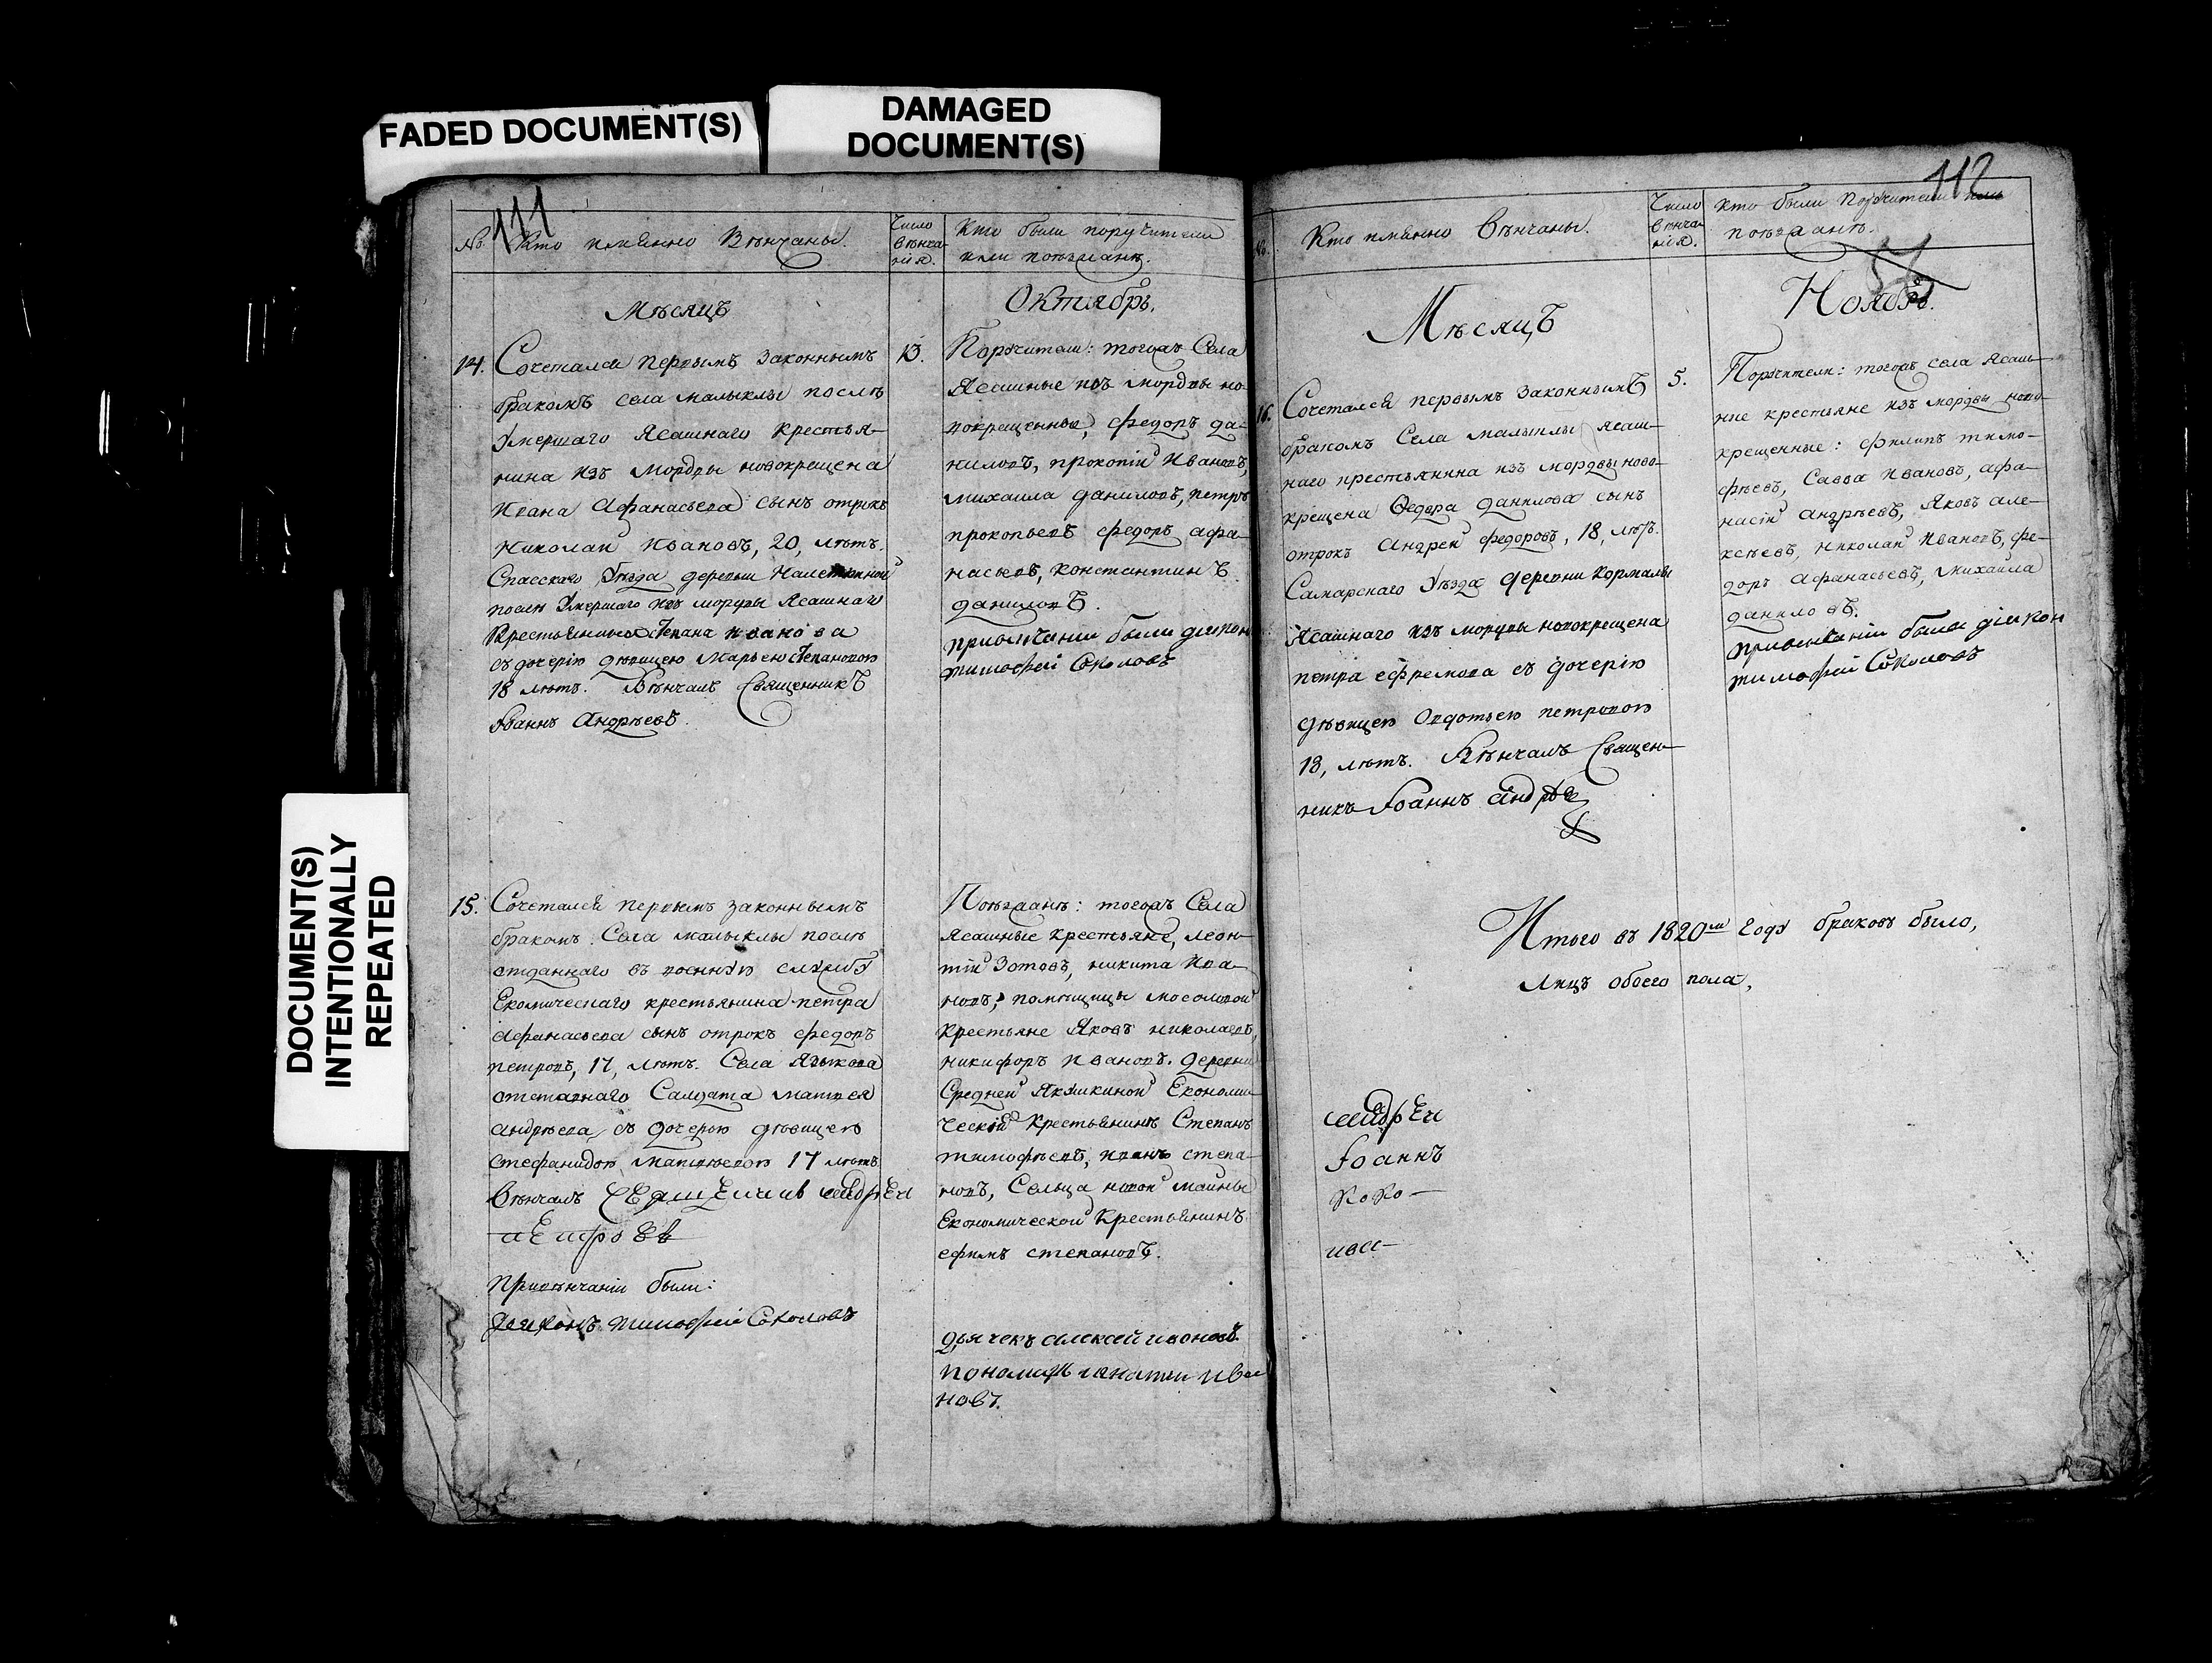 FADED DOCUMENT(S)
DAMAGED
DOCUMENT(S)
DOCUMENT(S)
INTENTIONALLY
REPEATED
111
№
Кто имянно Вѣнчаны.
Число
вѣнча
нія.
Кто были поручители
или поѣзжанѣ.
Мѣсяцъ
Октябрь.
14.
Сочетался первымъ законнымъ
бракомъ села малыклы послѣ
Умершаго Ясашнаго крестья-
нина изъ Мордвы новокрещена
Ивана Афанасьева сынъ отрокъ
Николай Ивановъ, 20, лѣтъ.
Спасскаго Уѣзда деревни
послѣ Умершаго изъ мордвы Ясашнаго
Крестьянина Степана Иванова
съ дочерію дѣвицею Марьею Степановою
18 лѣтъ. Вѣнчалъ Священникъ
Іоаннъ Андрѣевъ.
13.
Поручители: тогожъ Села
Ясашные изъ мордвы но-
вокрещенные, федоръ да-
ниловъ, прокопій Ивановъ,
михаила даниловъ, петръ
прокопьевъ федоръ афа-
насьевъ, константинъ
даниловъ.
привѣнчаніи были діякон
тимофей Соколовъ
15.
Сочетался первымъ законнымъ
бракомъ Села малыклы послѣ
отданнаго въ военную службу
Екомическаго крестьянина петра
Афанасьева сынъ отрокъ федоръ
петровъ, 17, лѣтъ. Села Языкова
отставнаго Салдата матвея
андрѣева, съ дочерью дѣвицею
Стефанидою матвѣевою 17 лѣтъ
Вѣнчалъ Священникъ андрей
петровъ
Привѣнчаніи были:
діяконъ тимофей Соколовъ
Поѣзжанѣ: тогожъ Села
Ясашные крестьяне, леон-
тій Зотовъ, никита Ива-
новъ, помѣщицы мосоловой
крестьяне Яковъ николаевъ,
никифоръ Ивановъ. деревни
Средней Якушкиной Економи-
ческій крестьянинъ Степанъ
тимофѣевъ, иванъ степа-
новъ, Сельца новой майны
Економической Крестьянинъ
ефимъ степановъ.
дьячекъ алексей ивановъ
пономарь игнатей ива
новъ.
112
№
Кто имянно Вѣнчаны.
Число
вѣнча
нія.
Кто были Поручители или
поѣзжанѣ.
Мѣсяцъ
Ноябрь.
16.
Сочетался первымъ законнымъ
бракомъ Села малыклы ясаш-
наго крестьянина изъ мордвы ново-
крещена Ѳедора данилова сынъ
отрокъ Андрей федоровъ, 18, лѣтъ.
Самарскаго Уѣзда деревни Кормалы
Ясашнаго изъ мордвы новокрещена
петра ефремова съ дочерію
дѣвицею Овдотьею петровою
18, лѣтъ. Вѣнчалъ Священ-
никъ Іоаннъ андрѣе
5.
Поручители: тогожъ села Ясаш-
ные крестьяне изъ мордвы ново-
крещенные: филипъ тимо-
фѣевъ, Савва Ивановъ, афа-
насій андрѣевъ, Яковъ але-
ксѣевъ, николай Ивановъ, фе-
доръ афанасьевъ, михаила
даниловъ.
привѣнчаніи были діякон
тимофей Соколовъ
Итого въ 1820м году браковъ было,
Лицъ обоего пола,
андрей
Іоаннъ